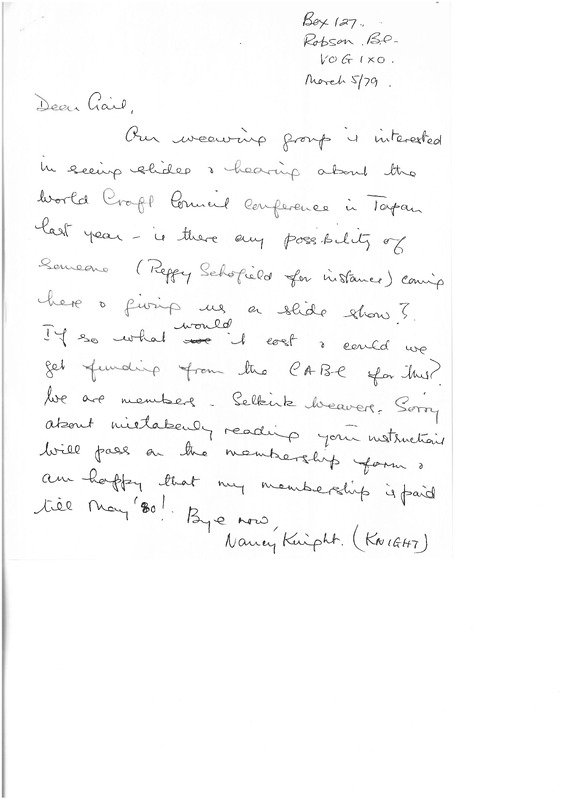 Box 127.
Robson B.C.
V0G 1X0.
March 5/79.
Dear Gail,
Our weaving group is interested
in seeing slides & hearing about the
World Craft Council conference in Japan
last year – is there any possibility of
someone (Peggy Schofield for instance) coming
here & giving us a slide show?
If so what would it cost & could we
get funding from the CABC for this?
We are members – Selkirk Weavers. Sorry
about mistakenly reading your instructions
Will pass on the membership form &
am happy that my membership is paid
till May '80! Bye now,
Nancy Knight. (KNIGHT)